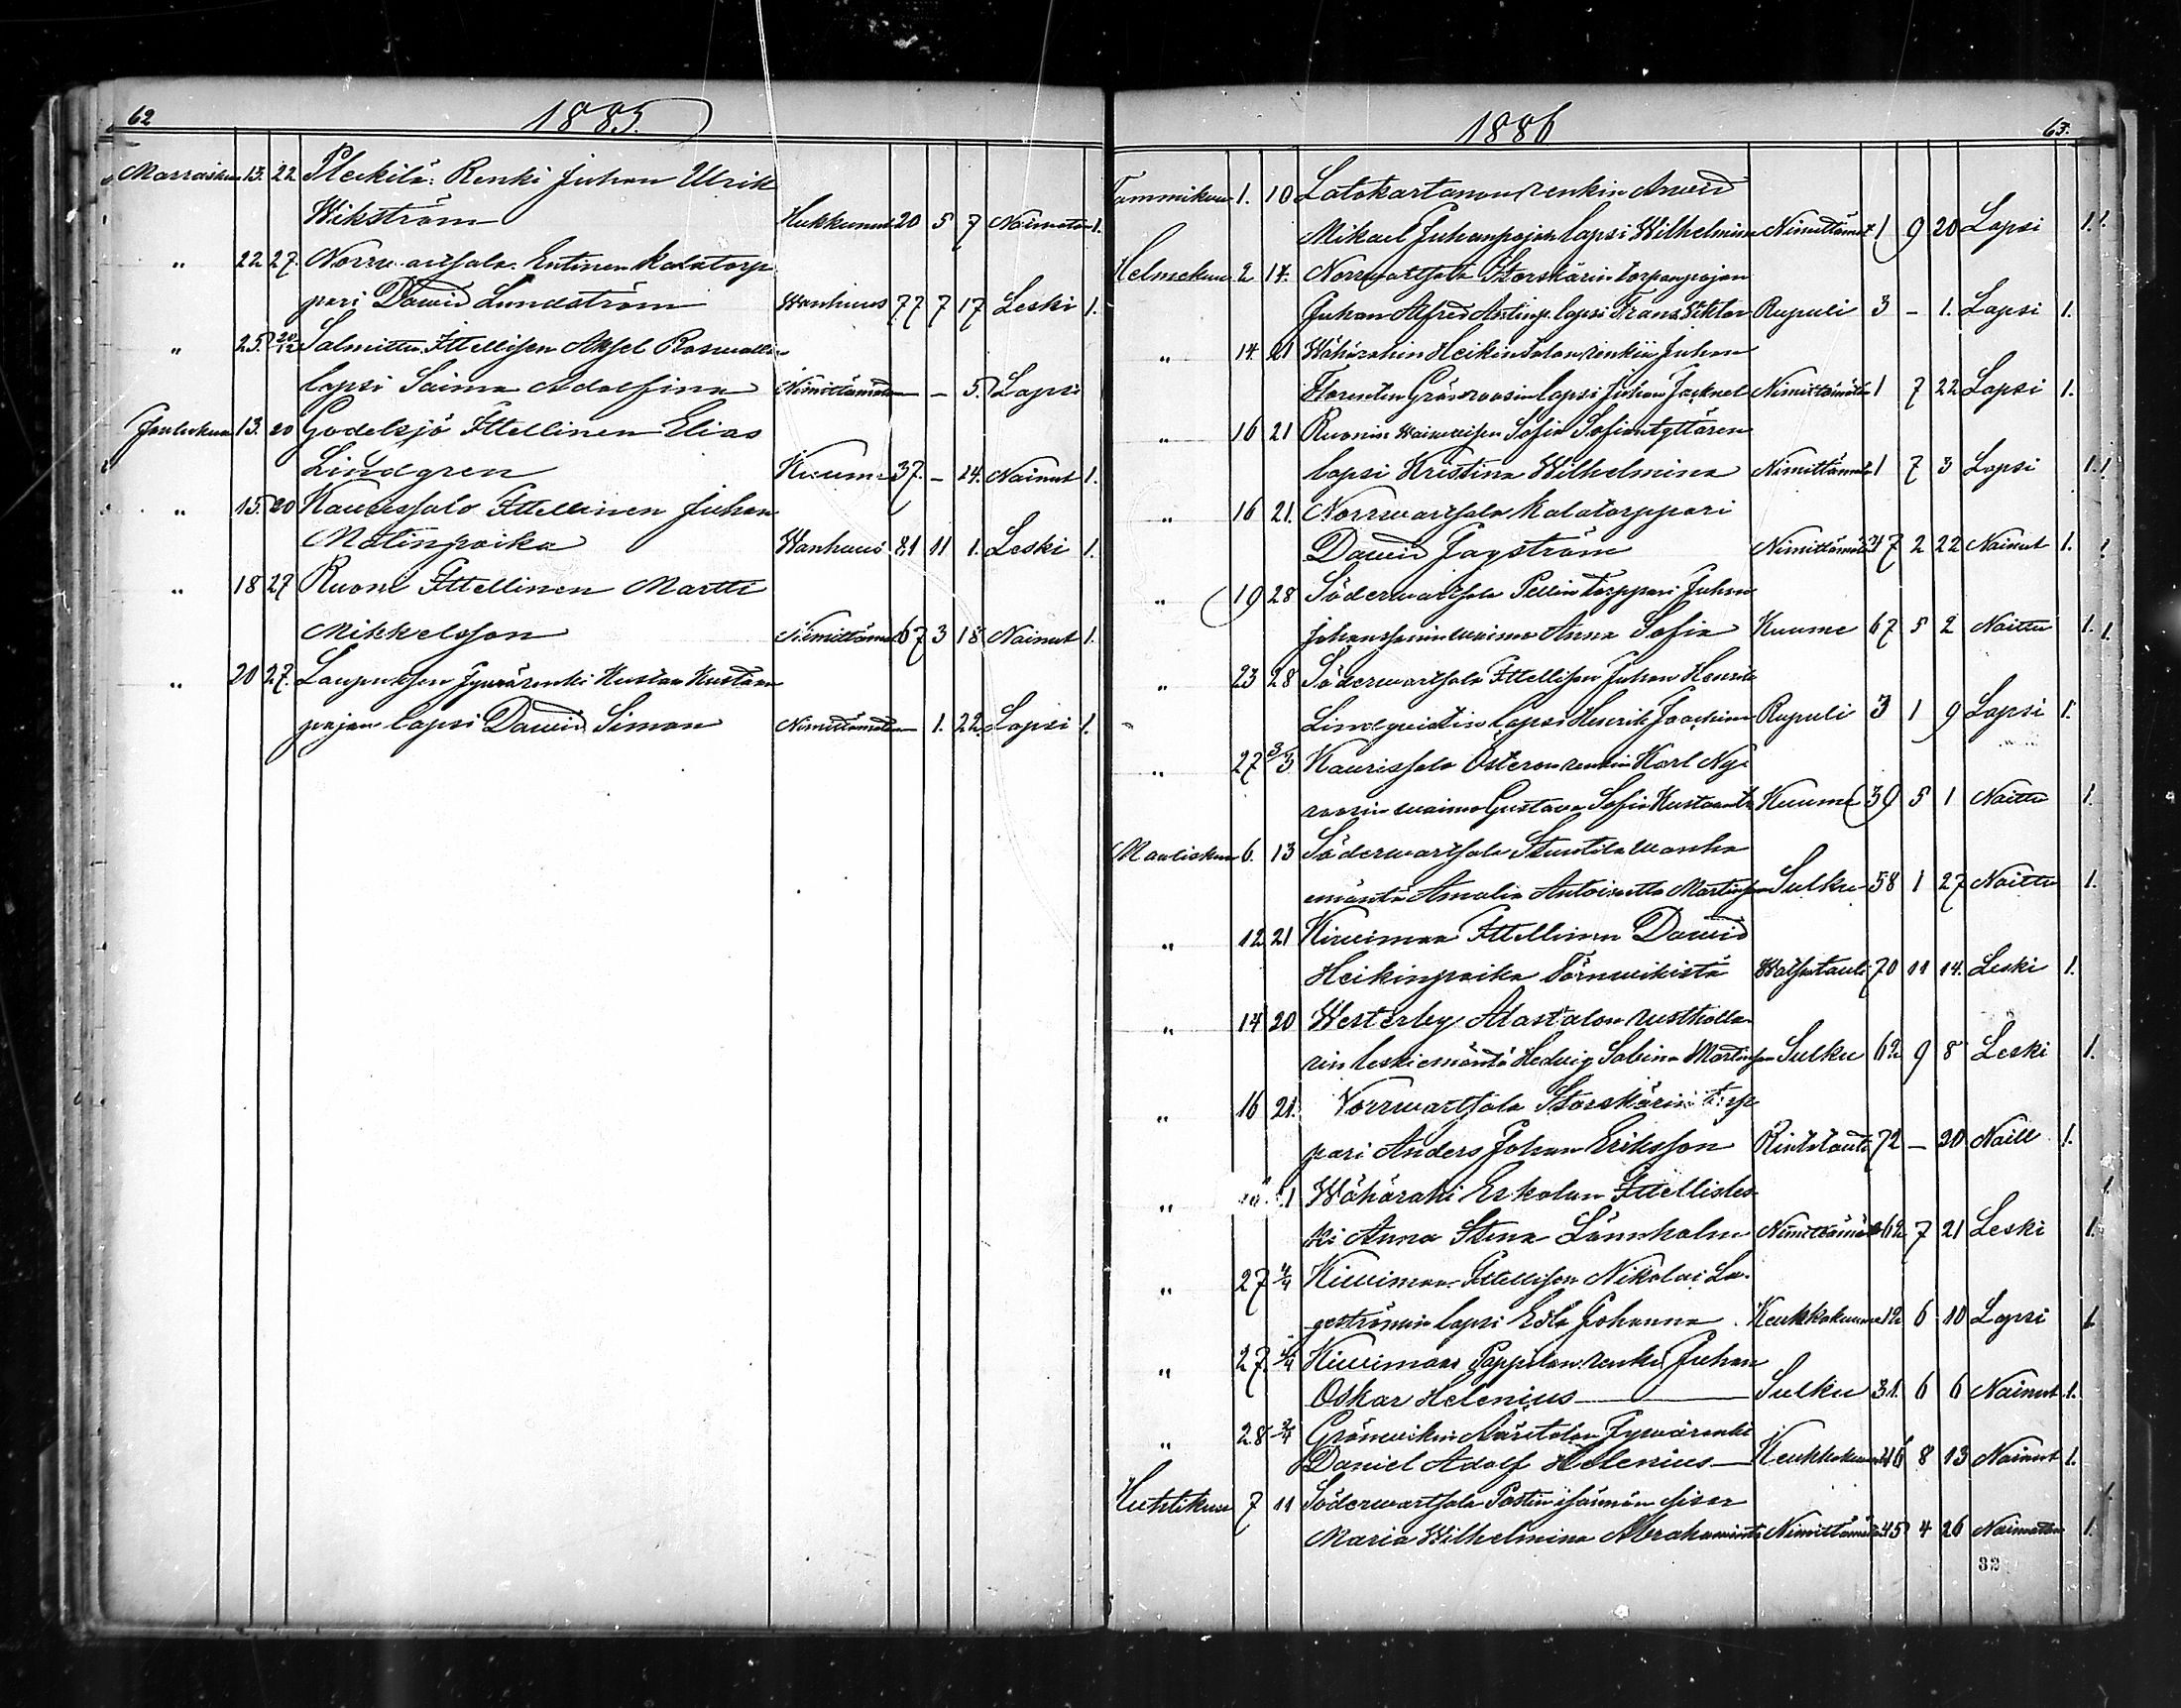 62
1885
Marraskuu 13. 22 Pleikilä: Renki Juhan Ulrik
Wikström Hukkunut 20 5 7 Naimaton 1.
" 22 27. Norrwartsala. Entinen kalatorp
pari Dawid Lundström Wanhuus 77 7 17 Leski 1.
" 25. 20/12 Salmittu Ittellisen Aksel Roswallin
lapsi Saima Adolfina Nimittämätön — — 5. Lapsi
Joulukuu 13. 20 Godelsjö Ittellinen Elias
Lindgren Kuume 37. — 24. Nainut 1.
" 15. 20 Kaurissalo Ittellinen Juhan
Matinpoika Wanhuus 81 11 1. Leski 1.
" 18 27 Ruoni Ittellinen Martti
Mikkelsson Nimittämät 67 3 18 Nainut 1.
" 20 27. Laupuksen Jyvärenki Kustaa Kustaan
pojan lapsi Dawid Simon Nimittämätön — 1. 22. Lapsi 1.
1886
63.
Tammikuu 1. 10 Latokartanon renkin Arwid
Mikael Juhanpojan lapsi Wilhelmina Nimittämät 1 9 20 Lapsi 1.
Helmekuu 2 14. Norrwartsala Storskärin torpanpojan
Juhan Alfred Antinp. lapsi Frans Viktor Rupuli 3 — 1. Lapsi 1.
" 14 21 Wähärahin Heikintalon renkin Juhan
Florentin Gränroosin lapsi Juhan Joaknel Nimittämätön 1 7 22 Lapsi 1.
" 16 21 Ruonin Waiwaisen Sofia Sofiantyttären
lapsi Kristina Wilhelmina Nimittämät 1 7 3 Lapsi 1.
" 16 21. Norrwartsala kalatorppari
Dawid Jagström Nimittämät 47 2 22 Nainut 1.
" 19 28 Söderwartsala Pellin torppari Juhan
Johanssonin waimo Anna Sofia Kuume 67 5 2 Naittu 1.
" 23 28 Söderwartsala Ittellisen Juhan Henrik
Lindqvistin lapsi Henrik Joackim Rupuli 3 1 9 Lapsi 1.
" 27 3/3 Kaurissala Österon renkin Karl Ny-
roosin waimo Gustava Sofia Kustaant. Kuume 39 5 1 Naittu 1.
Maaliskuu 6. 13 Söderwartsala Stuutila wanha
emäntä Amalia Antoinetta Martinson Sulku 58 1 27 Naittu 1.
" 12 21 Kiwimaa Ittellinen Dawid
Heikinpoika Törnwikistä Watsatauti 70 11 14. Leski 1.
" 14 20 Westerby Alastalon rusthollа-
rin leskiemäntä Hedvig Sabina Martinson Sulku 62 9 8 Leski 1.
" 16 21. Norrwartsala Storskärin torp
pari Anders Johan Eriksson Rintatauti 72 — 20 Naitt 1.
" Wähärahi Eskolan Ittellisles
ki Anna Stina Lönnholm Nimittämät 62 7 21 Leski 1.
" 27 4/4 Kiwimaa Ittellisen Nikolai La-
geströmin lapsi Edla Johanna Keuhkokuume 12 6 10 Lapsi 1.
" 27. 4/4 Kiwimaa Pappilan renki Juhan
Oskar Helenius Sulku 31. 6 6 Nainut 1.
" 28 4/4 Grönwikin Jyvärenki
Daniel Adolf Helenius Keuhkokuume 46 8 13 Nainut 1.
Huhtikuu 7 11 Söderwartsala Postin isännän sisar
Maria Wilhelmina Abrahamint. Nimittämät 45 4 26 Naimaton 1.
32